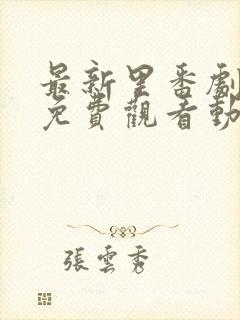 最新里番劇
免費觀看動
張雲秀